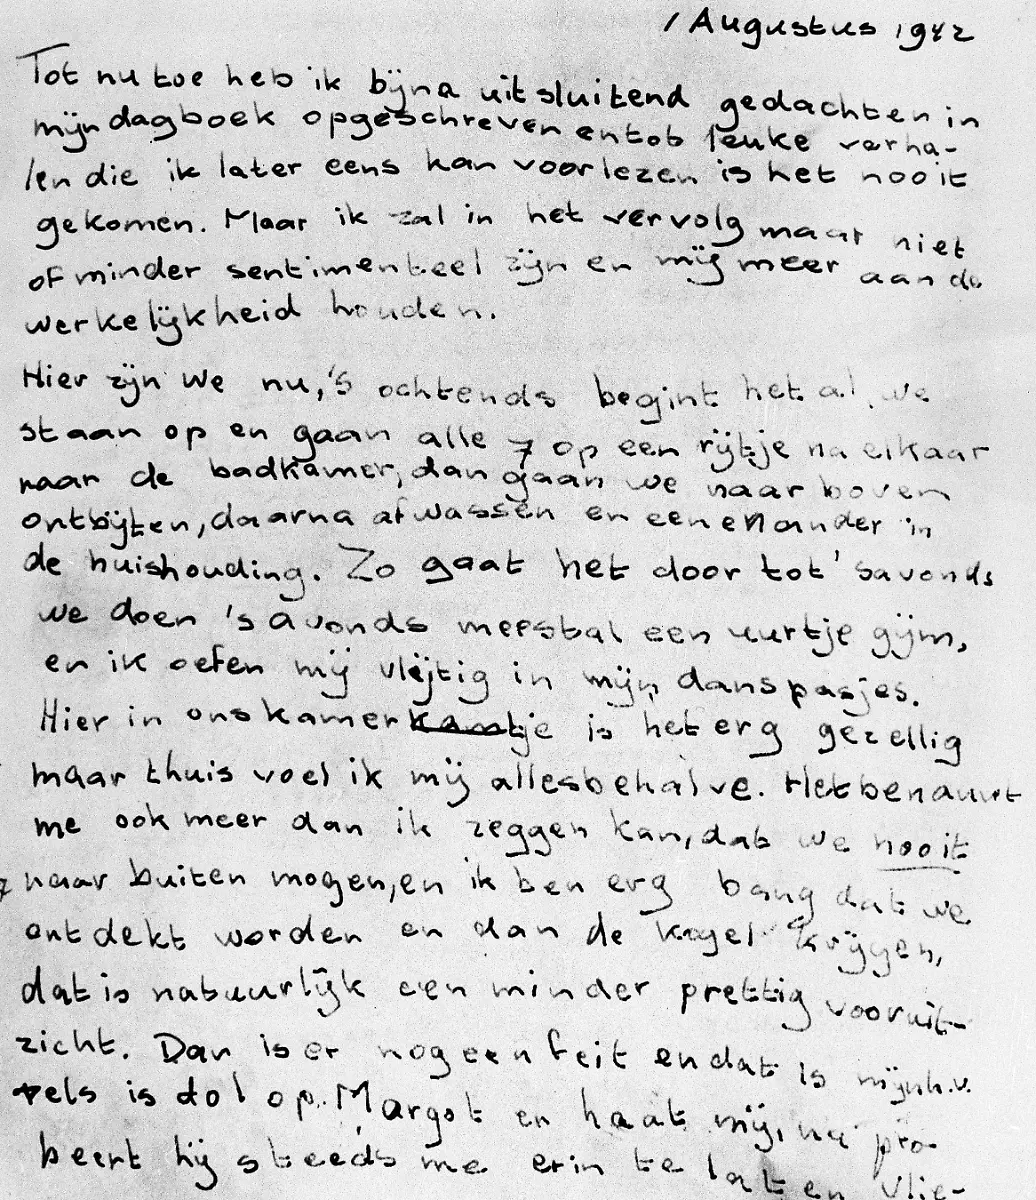 1 Augustus 1942
Tot nu toe heb ik bijna uitsluitend gedachten in
mijn dagboek opgeschreven en tot leuke verha-
len die ik later eens kan voorlezen is het nooit
gekomen. Maar ik zal in het vervolg maar niet
of minder sentimenteel zijn en mij meer aan de
werkelijkheid houden.
Hier zijn we nu, 's ochtends begint het al, we
staan op en gaan alle 7 op een rijtje na elkaar
naar de badkamer, dan gaan we naar boven
ontbijten, daarna afwassen en een en ander in
de huishouding. Zo gaat het door tot 's avonds
we doen 's avonds meestal een uurtje gijm,
en ik oefen mij vlijtig in mijn danspasjes.
Hier in ons kamerkamtje is het erg gezellig
maar thuis voel ik mij allesbehalve. Het benauwt
me ook meer dan ik zeggen kan, dat we nooit
naar buiten mogen, en ik ben erg bang dat we
ontdekt worden en dan de kogel krijgen,
dat is natuurlijk een minder prettig vooruit-
zicht. Dan is er nog een feit en dat is mijnh. v.
pels is dol op Margot en haat mij, nu pro-
beert hij steeds me erin te laten vlie-